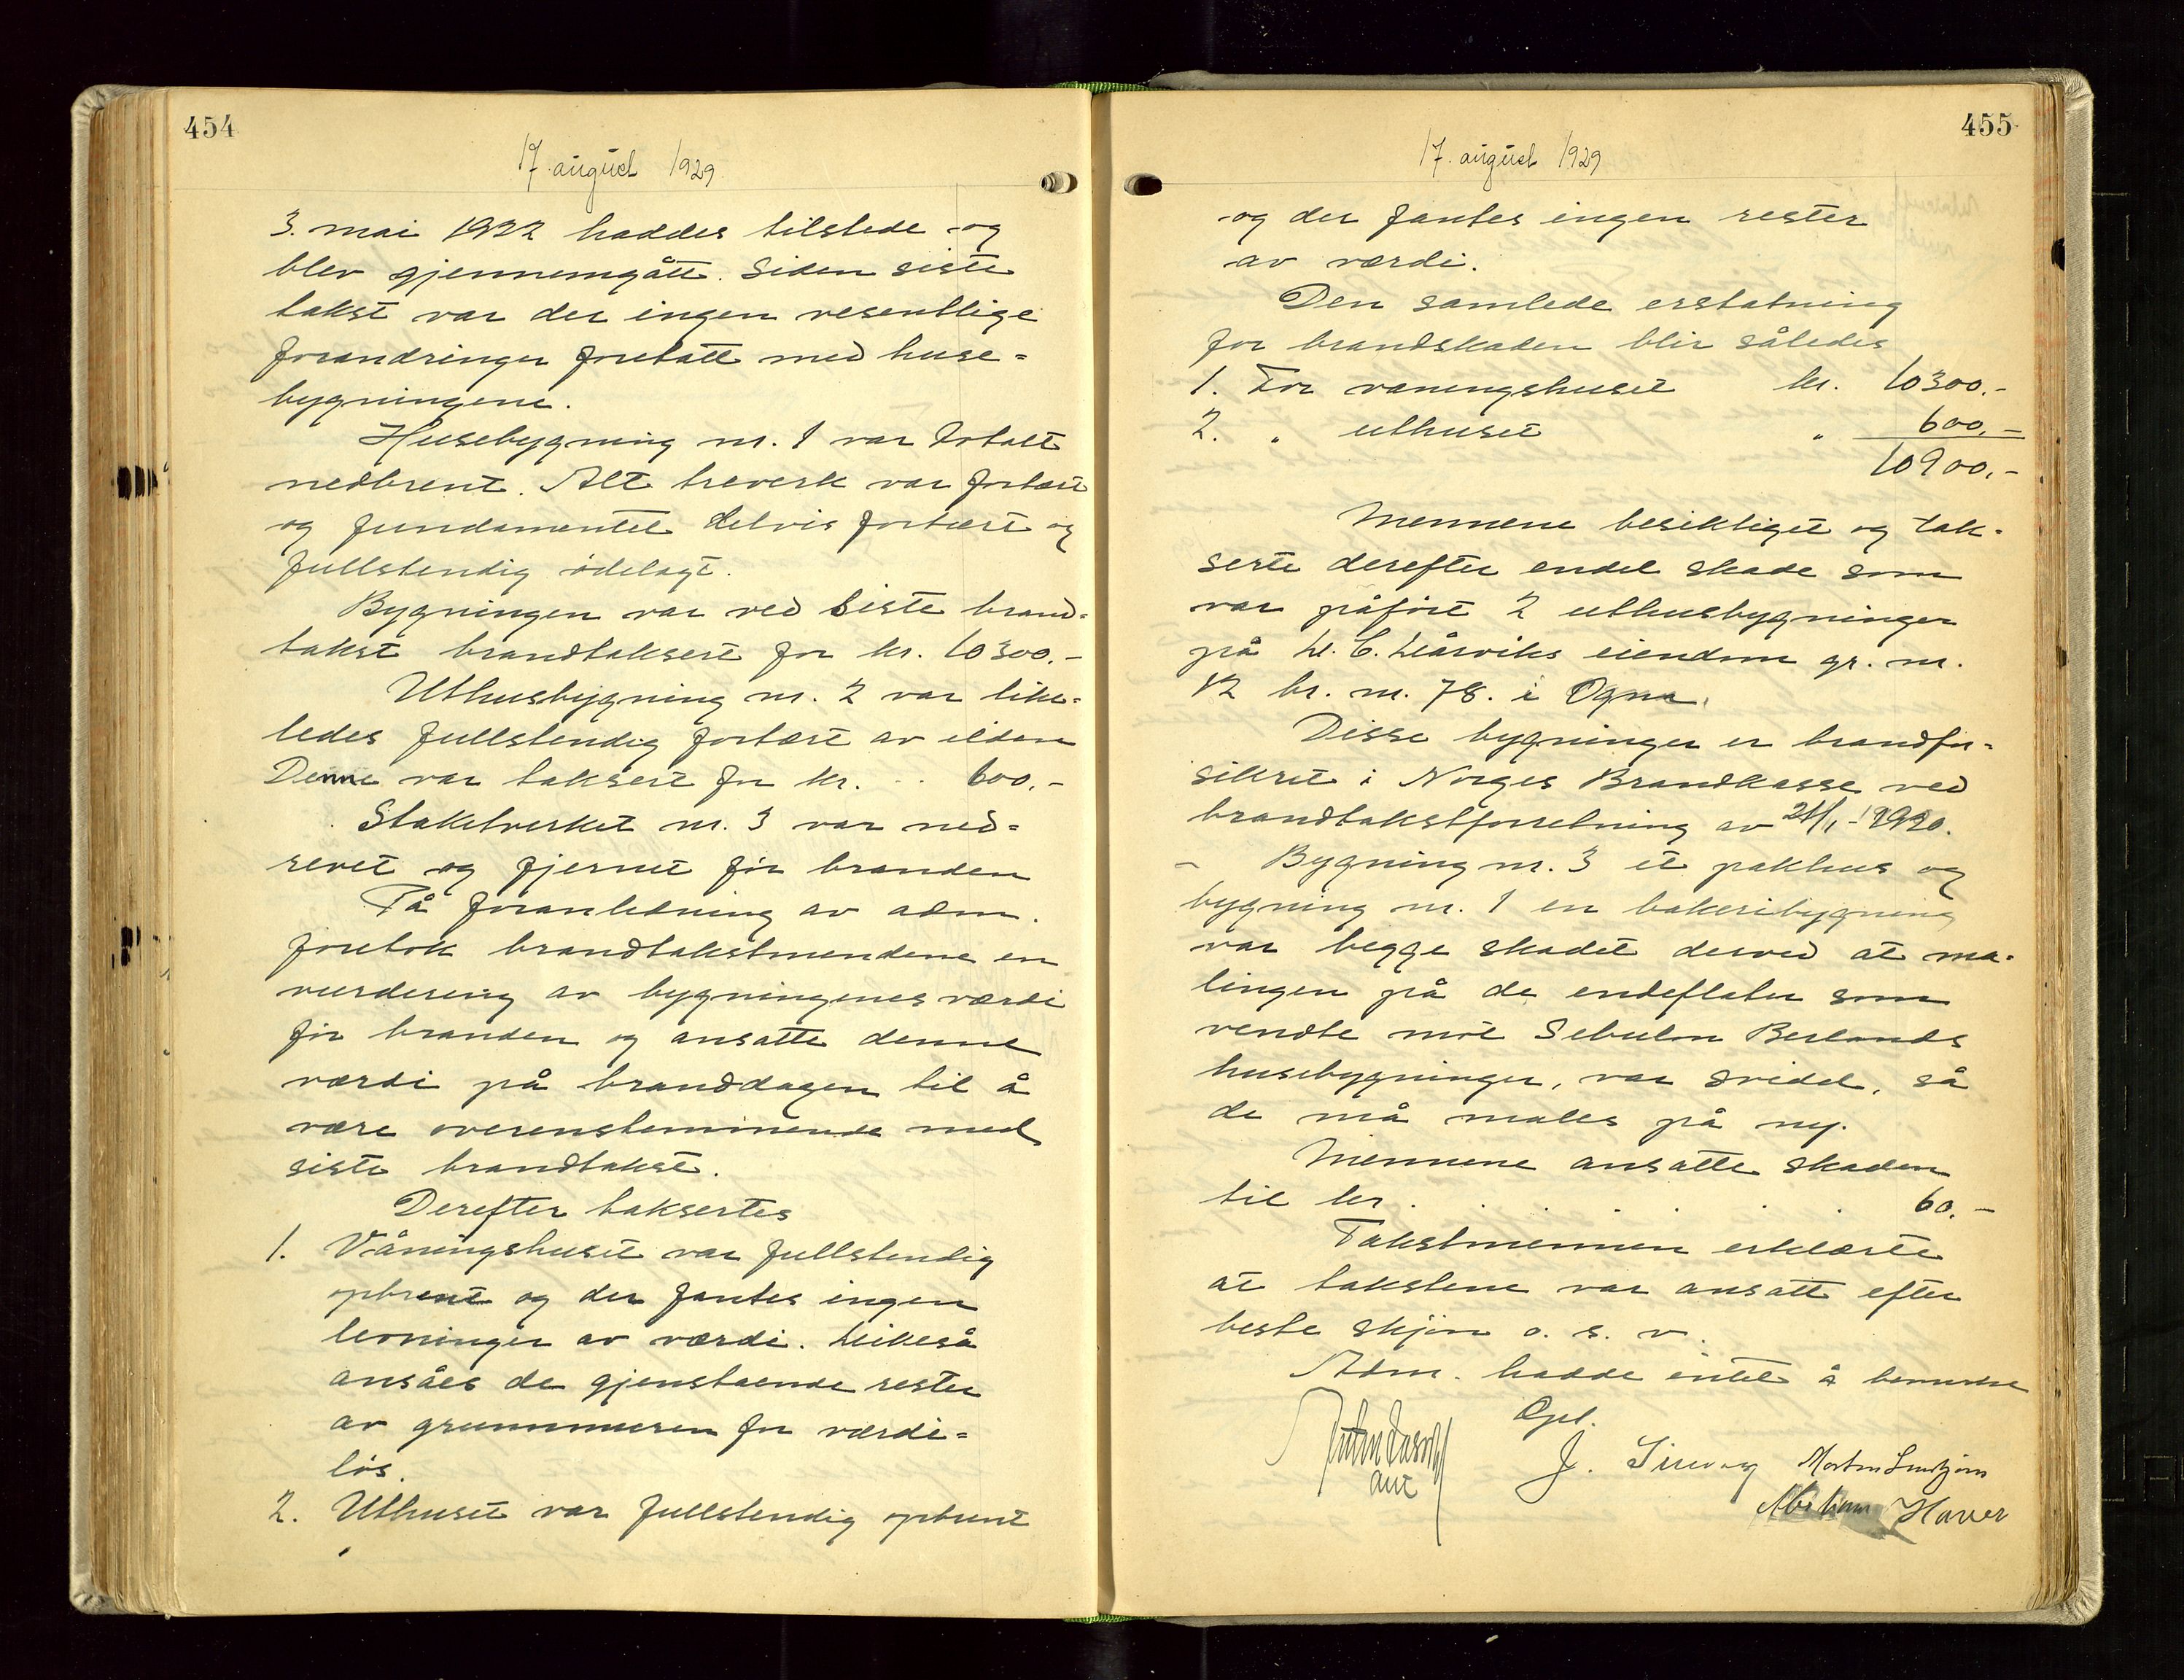 454
17. august 1929
3. mai 1922 haddes tilstede og
blev gjennemgått. Siden siste
takst var der ingen vesentlige
forandringer foretatt med huse-
bygningene.
Husebygning nr. 1 var totalt
nedbrent. Alt treverk var fortært
og fundamentet delvis fortært og
fullstendig ødelagt.
Bygningen var ved siste brand-
takst brandtaksert for kr. 10300.-
Uthusbygning nr. 2 var like-
ledes fullstendig fortært av ilden
Denne var taksert for kr. . . 600.-
Stakitverket nr. 3 var ned-
revet og fjernet før branden
På foranledning av adm.
foretok brandtakstmendene en
vurdering av bygningenes værdi
før branden og ansatte denne
værdi på branddagen til å
være overensstemmende med
siste brandtakst.
Derefter taksertes
1. Våningshuset var fullstendig
opbrent og der fantes ingen
levninger av værdi. Likeså
ansåes de gjenstaende rester
av grunnmuren for værdi-
løs.
2. Uthuset var fullstendig opbrent
455
17. august 1929
og der fantes ingen rester
av værdi.
Den samlede erstatning
for brandskaden blir således
1. For vaningshuset kr. 10300.-
2. " uthuset " 600.-
10900.-
Mennene besiktiget og tak-
serte derefter endel skade som
var påført 2 uthusbygninger
på L. C. Lårviks eiendom gr. nr.
12 br. nr. 78. i Ogna.
Disse bygninger er brandfor-
sikret i Norges Brandkasse ved
brandtakstforretning av 21/1-1920.
- Bygning nr. 3 et pakhus og
bygning nr. 1 en bakeribygning
var begge skadet derved at ma-
lingen på de endeflater som
vendte mot Sebulon Berlands
husebygninger, var svidd, så
de må males på ny.
Mennene ansatte skaden
til kr. . . . . . 60.-
Takstmennene erklærte
at takstene var ansatt efter
beste skjøn o. s. v.
Adm. hadde intet å bemerke
Opl.
J. Sirevag
Abraham Haver